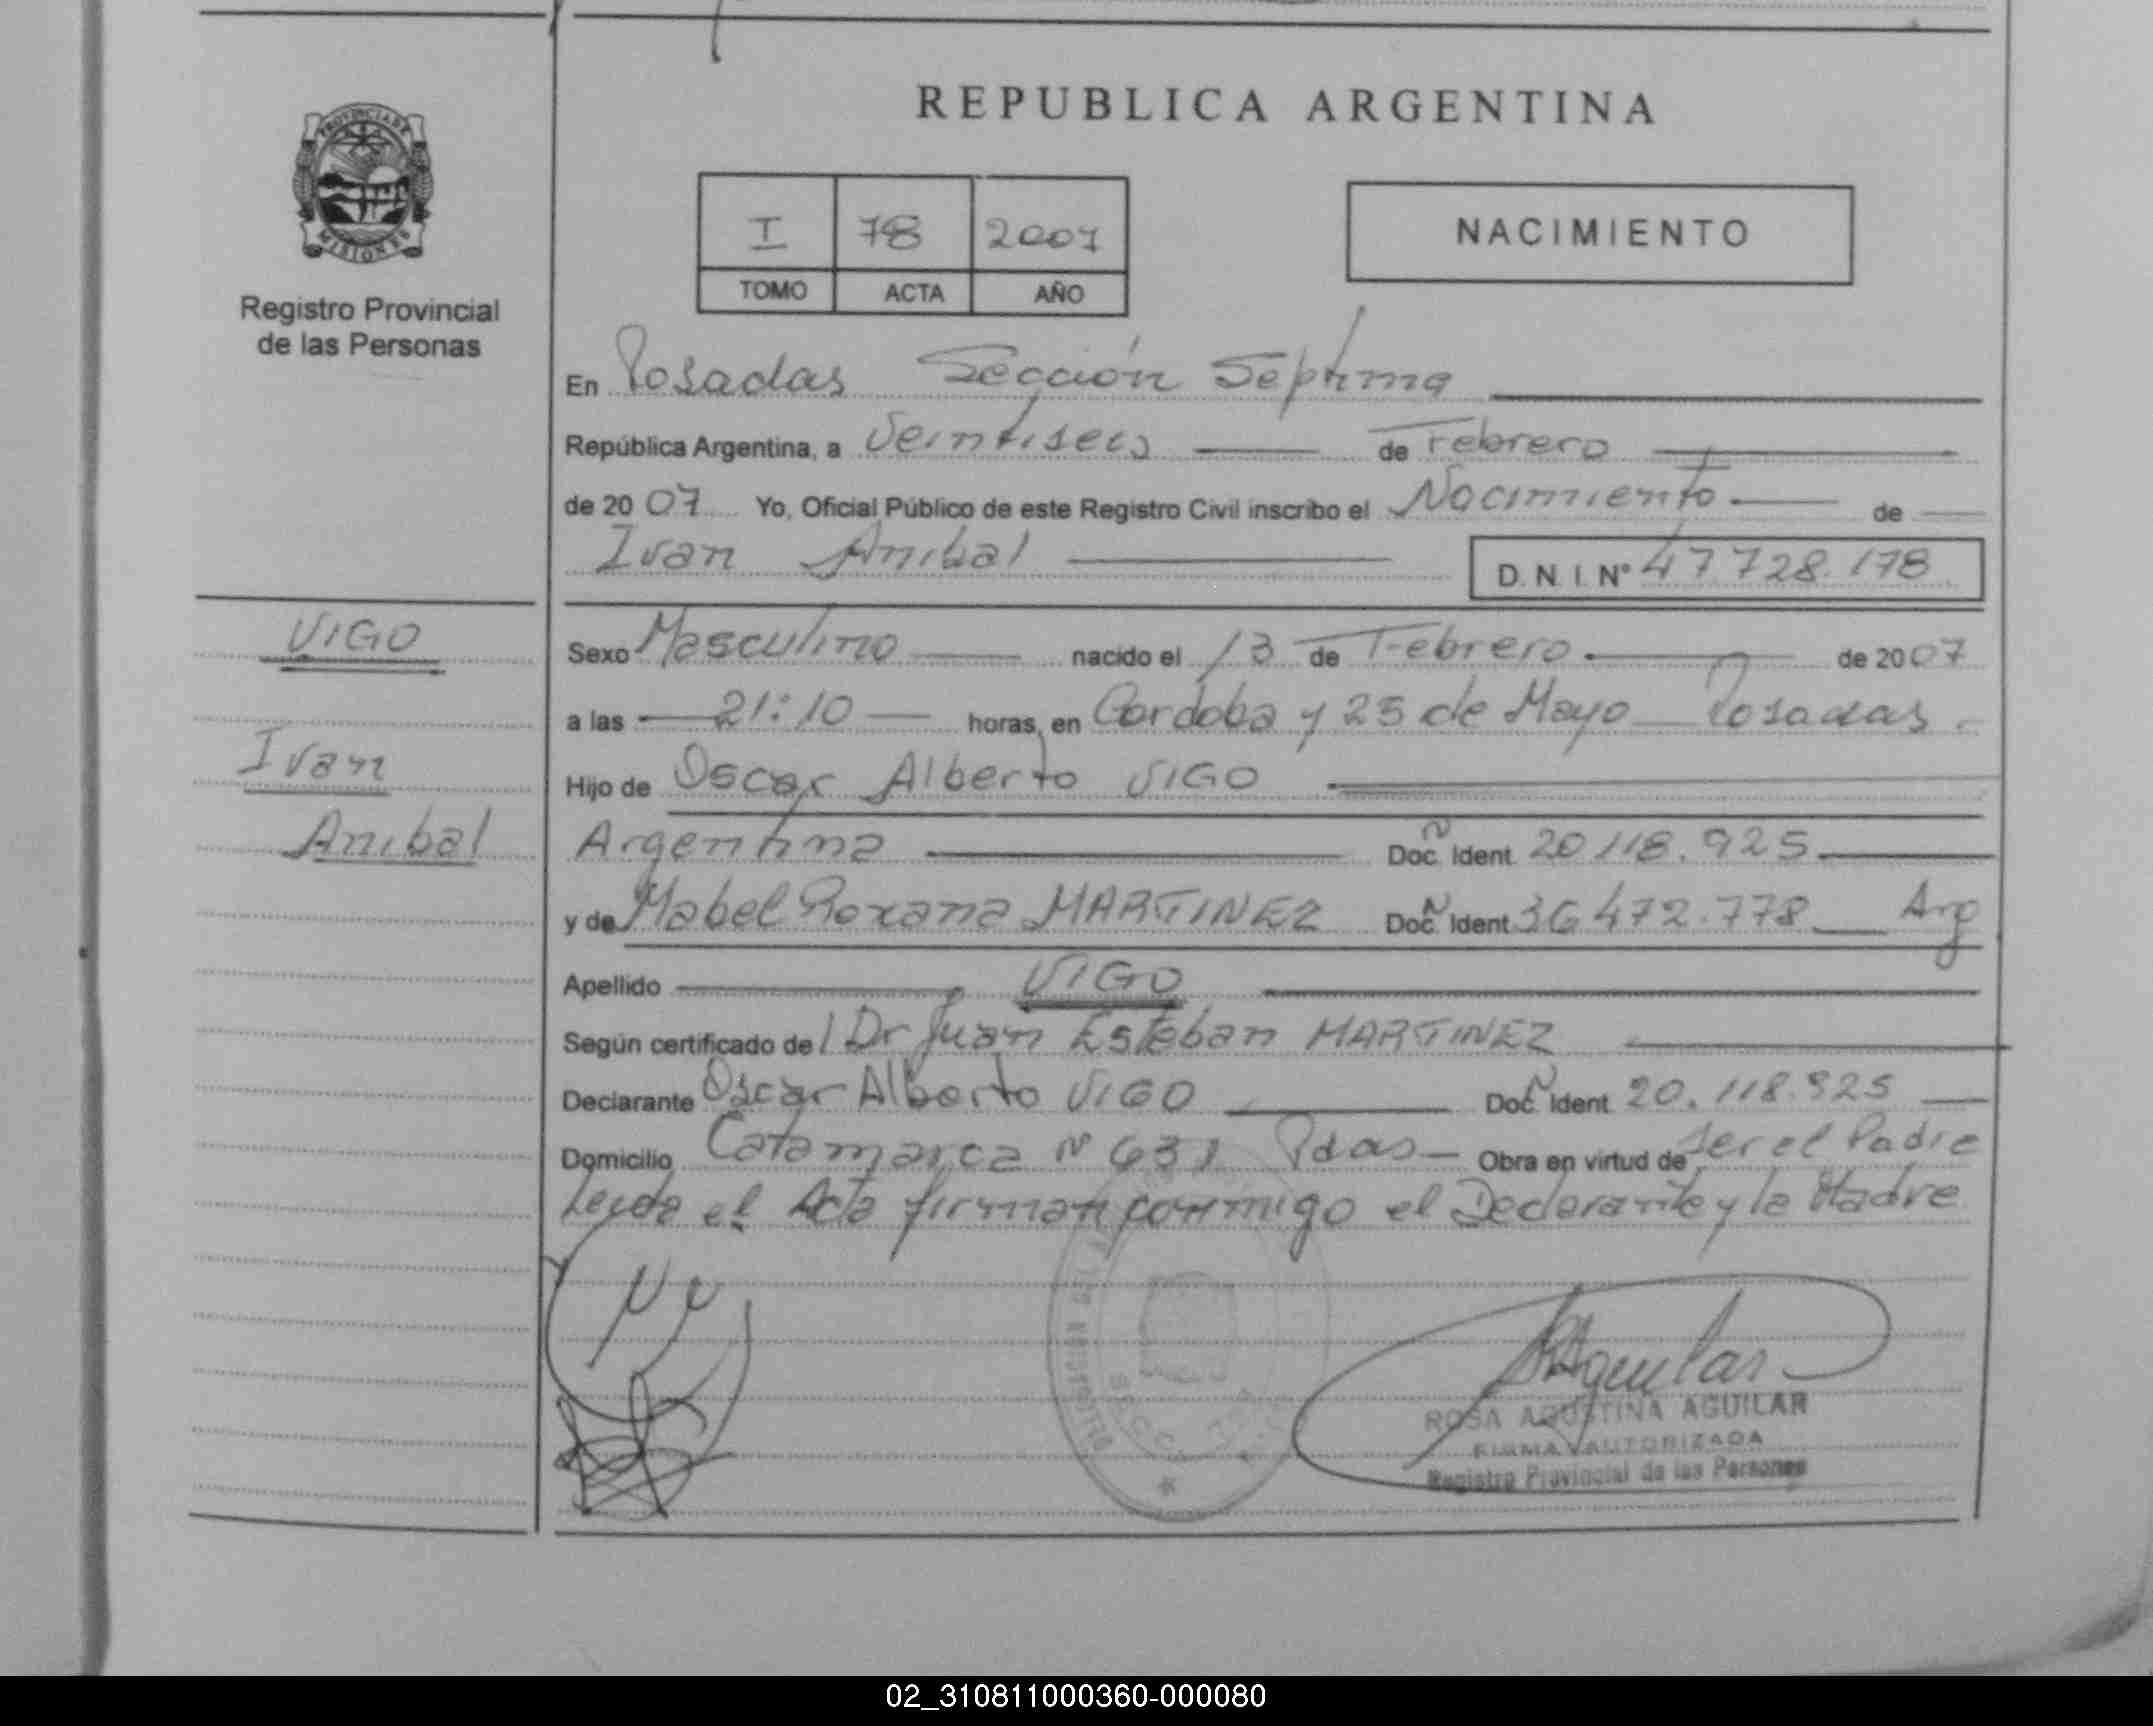 REPUBLICA ARGENTINA
PROVINCIA DE
MISIONES
Registro Provincial
de las Personas
I 78 2007
TOMO ACTA AÑO
NACIMIENTO
En Posadas Sección Septima
República Argentina, a Veintiseis de Febrero
de 2007 Yo, Oficial Público de este Registro Civil inscribo el Nacimiento de
Ivan Anibal D.N.I. N° 47728.178
VIGO
Ivan
Anibal
Sexo Masculino nacido el 13 de Febrero de 2007
a las 21:10 horas, en Cordoba y 25 de Mayo Posadas
Hijo de Oscar Alberto VIGO
Argentina Doc. Ident 20118.925
y de Mabel Roxana MARTINEZ Doc. Ident 36472.778 Arg
Apellido VIGO
Según certificado de l Dr Juan Esteban MARTINEZ
Declarante Oscar Alberto VIGO Doc. Ident 20.118.925
Domicilio Catamarca N 631 Pdas Obra en virtud de ser el Padre
Leyda el Acta firman conmigo el Declarante y la Madre
RAguilar
ROSA AGUSTINA AGUILAR
FIRMA AUTORIZADA
Registro Provincial de las Personas
02_310811000360-000080